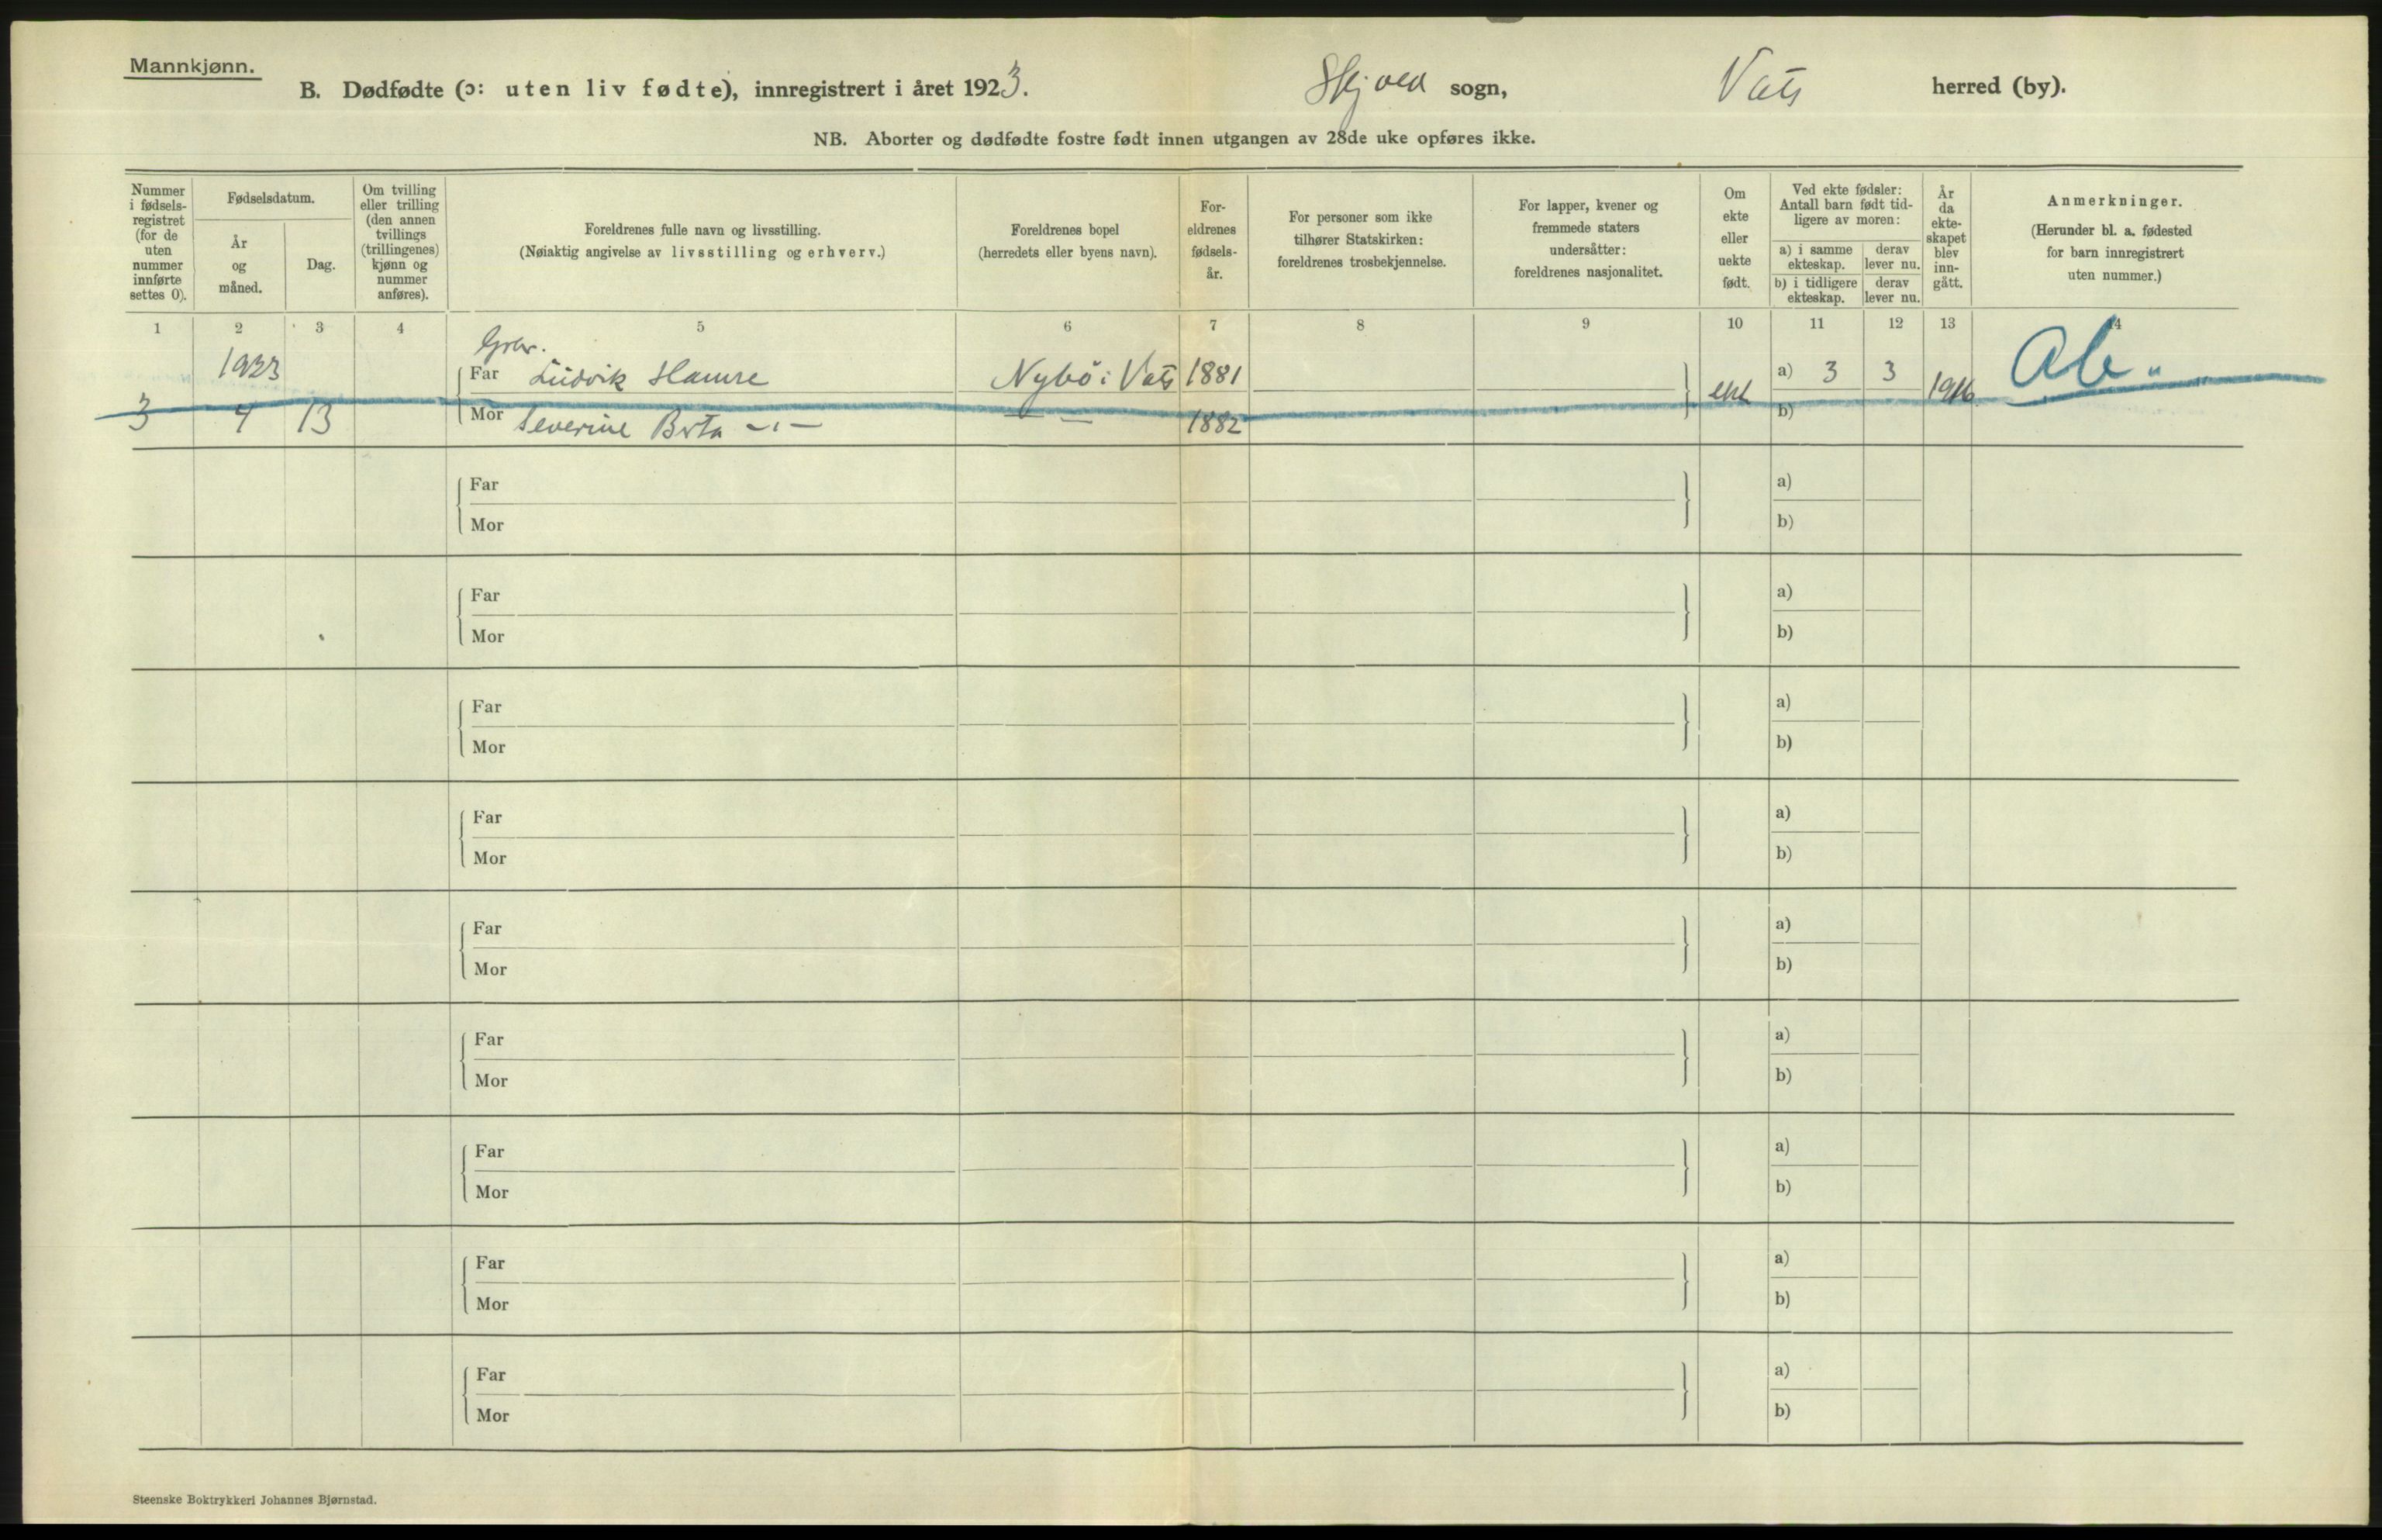 Mannkjønn.
B. Dødfødte (ɔ: uten liv fødte), innregistrert i året 1923. Skjold sogn, Vats herred (by).
NB. Aborter og dødfødte fostre født innen utgangen av 28de uke opføres ikke.
Nummer i fødsels-registret (for de uten nummer innførte settes 0).
Fødselsdatum.
År og måned.
Dag.
Om tvilling eller trilling (den annen tvillings (trillingenes) kjønn og nummer anføres).
Foreldrenes fulle navn og livsstilling.
(Nøiaktig angivelse av livsstilling og erhverv.)
Foreldrenes bopel
(herredets eller byens navn).
For-eldrenes fødsels-år.
For personer som ikke tilhører Statskirken: foreldrenes trosbekjennelse.
For lapper, kvener og fremmede staters undersåtter: foreldrenes nasjonalitet.
Om ekte eller uekte født.
Ved ekte fødsler: Antall barn født tid-ligere av moren:
a) i samme ekteskap.
derav lever nu.
b) i tidligere ekteskap.
derav lever nu.
År da ekte-skapet blev inn-gått.
Anmerkninger.
(Herunder bl. a. fødested for barn innregistrert uten nummer.)
1 2 3 4 5 6 7 8 9 10 11 12 13 14
1923
Far Ludvik Hamre Nybö i Vats 1881
a) 3 3
ekt 1916
Ab.
3 4 13
Mor Severine Brta -"- — — 1882
b)
Far a)
Mor b)
Far a)
Mor b)
Far a)
Mor b)
Far a)
Mor b)
Far a)
Mor b)
Far a)
Mor b)
Far a)
Mor b)
Far a)
Mor b)
Far a)
Mor b)
Steenske Boktrykkeri Johannes Bjørnstad.